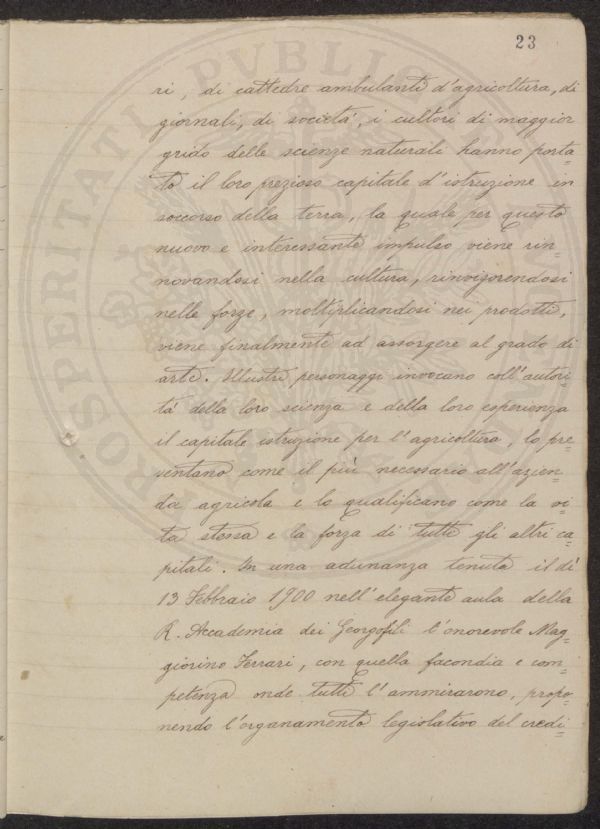 23
ri, di cattedre ambulanti d'agricoltura, di
giornali, di società, i cultori di maggior
grido delle scienze naturali hanno porta=
to il loro prezioso capitale d'istruzione in
soccorso della terra, la quale per questo
nuovo e interessante impulso viene rin=
novandosi nella cultura, rinvigorendosi
nelle forze, moltiplicandosi nei prodotti,
viene finalmente ad assorgere al grado di
arte. Illustri personaggi invocano coll'autori=
tà della loro scienza e della loro esperienza
il capitale istruzione per l'agricoltura, lo pre=
ventano come il più necessario all'azien=
da agricola e lo qualificano come la vi=
ta stessa e la forza di tutti gli altri ca=
pitali. In una adunanza tenuta il dì
13 Febbraio 1900 nell'elegante aula della
R. Accademia dei Georgofili l'onorevole Mag=
giorino Ferrari, con quella facondia e com=
petenza onde tutti l'ammirarono, propo=
nendo l'organamento legislativo del credi=
PROSPERITATI PVBLICAE